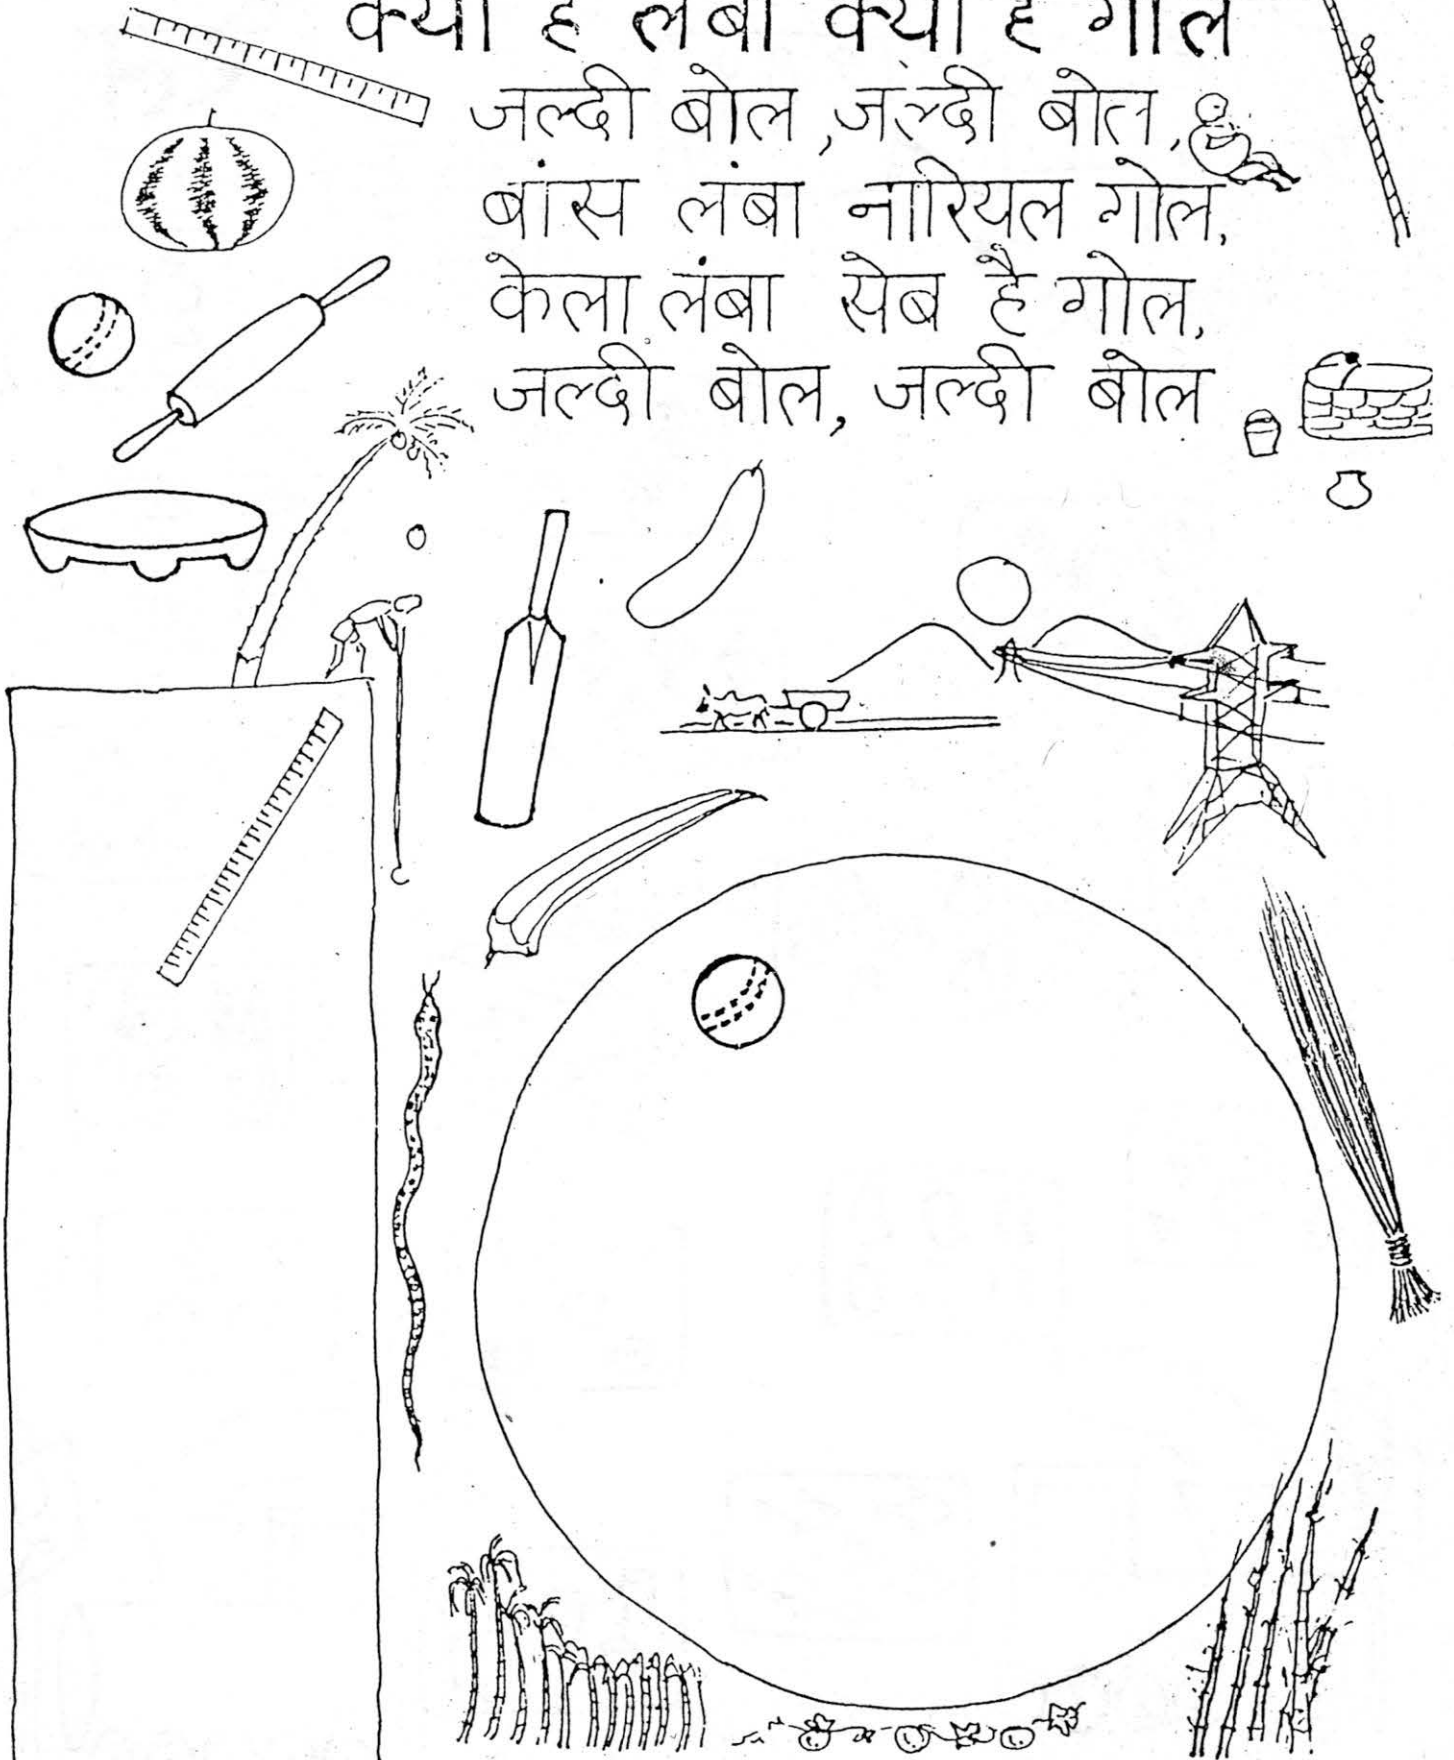 क्या है लंबा क्या है गोल
जल्दी बोल, जल्दी बोल,
बांस लंबा नारियल गोल,
केला लंबा सेब है गोल,
जल्दी बोल, जल्दी बोल